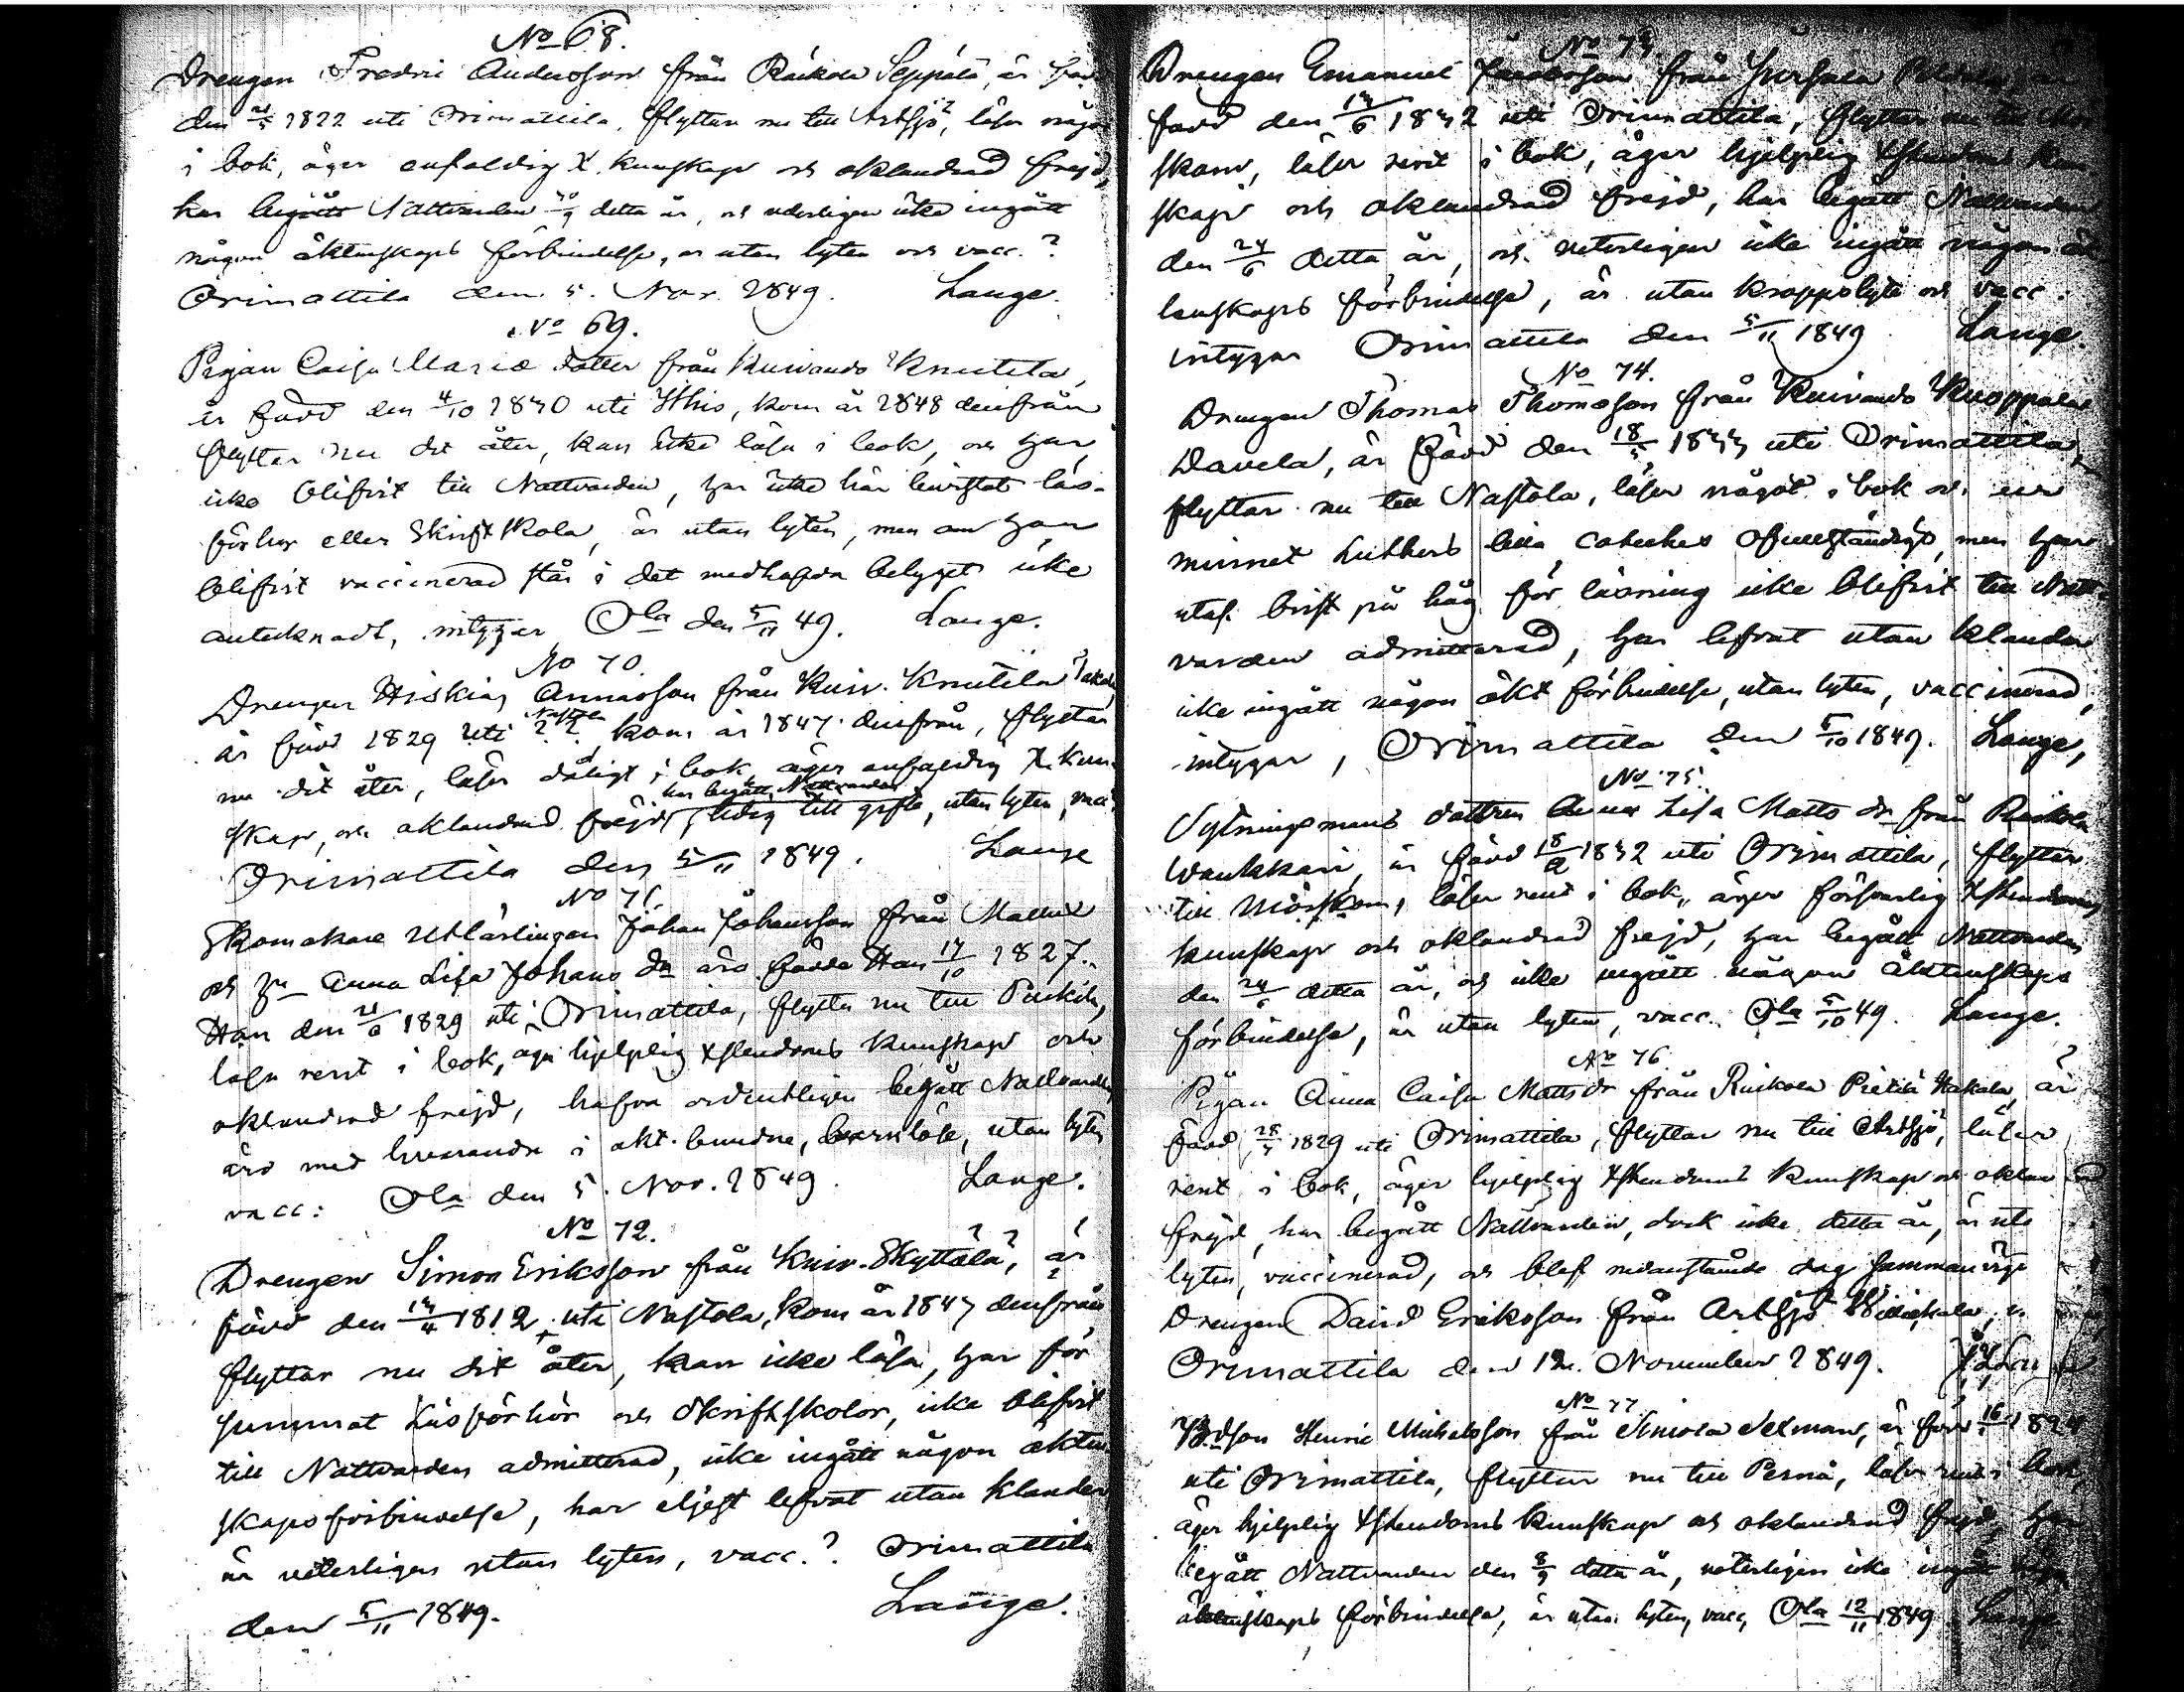 No 68.
Drengen Fredric Andersson från Räikälä Seppälä, är född
den 21/5 1822 uti Orimattila, flyttar nu till Artsjö, läser något
i bok, äger enfaldig X. kunskap och oklandrad frejd,
har begått Nattvarden detta år, och veterligen icke ingått
någon äktenskaps förbindelse, är utan lyten och vacc.?
Orimattila den 5. Nov. 1849. Lange.
No 69.
Pigan Caisa Maria dotter från Kuivando Knutila,
är född den 4/10 1830 uti Ithis, kom år 1848 derifrån
flyttar nu dit åter, kan icke läsa i bok, och har
icke blifvit till Nattvarden, har icke här bevistat läs-
förhör eller Skriftskola, är utan lyten, men om han
blifvit vaccinerad står i det medhafda betyget icke
antecknadt, intygar Ola den 5/11 49. Lange.
No 70.
Drengen Hiskias Annasson från Kuiv. Knutila
är född 1829 uti Nastola, kom år 1847 derifrån, flyttar
nu dit åter, läser dåligt i bok, äger enfaldig X. kun-
har begått Nattvarden
skap, och oklandrad frejd, ledig till gifte, utan lyten, vacc.
Orimattila den 5/11 1849. Lange
No 71.
Skomakare Utlärlingen Johan Johansson från Mallusi
och hu Anna Lisa Johans dr äro födde Han 17/10 1827.
Hon den 21/6 1829 uti Orimattila, flytta nu till Pukkila,
läsa rent i bok, äga hjelplig Xstendoms kunskap och
oklandrad frejd, hafva ordentligen begått Nattvarden
äro med hvarandra i äkt. bundne, barnlöse, utan lyten
vacc: Ola den 5. Nov. 1849. Lange.
No 72.
Drengen Simon Eriksson från Kuiv. Skyttälä, är
född den 13/4 1812 uti Nastola, kom år 1847 derifrån
flyttar nu dit åter, kan icke läsa, har för
summat Läsförhör och Skriftskolor, icke blifvit
till Nattvarden admitterad, icke ingått någon äkten
skapsförbindelse, har eljest lefvat utan klander
är veterligen utan lyten, vacc.? Orimattila
den 5/11 1849. Lange.
No 73.
Drengen Emanuel från
född den 13/6 1832 uti Orimattila, flyttar nu till
skom, läser rent i bok, äger hjelplig Xstendoms kun
skap och oklandrad frejd, har begått Nattvarden
den 24/6 detta år, och veterligen icke ingått någon äk
tenskaps förbindelse, är utan kroppslyte och vacc.
intygar Orimattila den 5/11 1849 Lange.
No 74.
Drengen Thomas Thomasson från Kuivando Kuoppala
Davela, är född den 18/5 1833 uti Orimattila,
flyttar nu till Nastola, läser något i bok och ur
minnet Luthers lilla Cateches ofullständigt, men har
utaf brist på håg för läsning icke blifvit till Natt-
varden admitterad, har lefvat utan klander
icke ingått någon äkt förbindelse, utan lyten, vaccinerad,
intygar, Orimattila den 5/10 1849. Lange,
No 75.
Sytningsmans dottren Anna Lisa Matts dr från Räikälä
Wankkari, är född 18/2 1832 uti Orimattila, flyttar
till Mörskom, läser rent i bok, äger försvarlig Xstendoms
kunskap och oklandrad frejd, har begått Nattvarden
den 24/6 detta år, och icke ingått någon äktenskaps
förbindelse, är utan lyten, vacc. Ola 5/10 49. Lange.
No 76.
Pigan Anna Caisa Matts dr från Ruikola Pietilä Hakala, är
född 1829 uti Orimattila, flyttar nu till Artsjö, läser
rent i bok, äger hjelplig Xstendoms kunskap och oklandrad
frejd, har begått Nattvarden, dock icke detta år, är utan
lyten, vaccinerad, och blef nedanstående dag sammanvigd
Drengen David Eriksson från Artsjö
Orimattila den 12. November 1849.
No 77
Bdson Henric Michelsson från Simola Selman, är född 16 1824
uti Orimattila, flyttar nu till Perno, läser rent i bok,
äger hjelplig Xstendoms kunskap och oklandrad frejd, har
begått Nattvarden den detta år, veterligen icke ingått någon
äktenskaps förbindelse, är utan lyten, vacc, Ola 12/11 1849. Lange